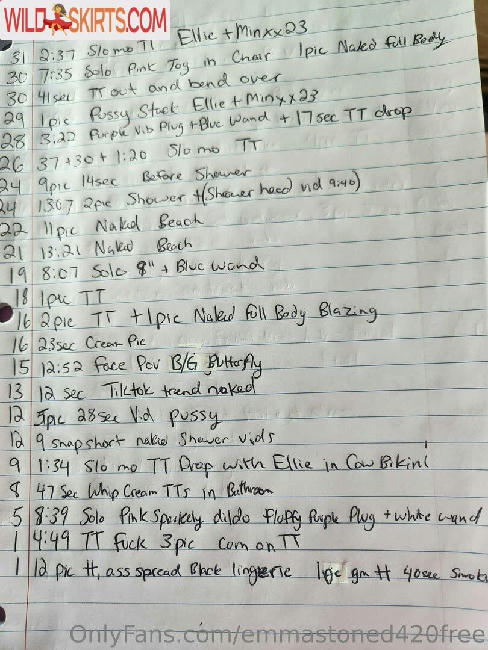 WILD-SKIRTS.COM
31 2:37 Slo mo TT Ellie + Minxx23
30 7:35 Solo Pink Toy in Chair 1pic Naked full Body
30 41sec TT out and bend over
29 1pic Pussy Stack Ellie + Minxx23
28 3:20 Purple Vib Plug + Blue Wand + 17sec TT drop
26 37 + 30 + 1:20 Slo mo TT
24 9pic 14sec Before Shower
24 13:07 2pic Shower + (Shower head vid 9:40)
22 11pic Naked Beach
21 13:21 Naked Beach
19 8:07 Solo 8" + Blue wand
18 1pic TT
16 2pic TT + 1pic Naked full Body Blazing
16 23sec Cream Pie
15 12:52 Face Pov B/G Butterfly
13 12 sec Tiktok trend naked
12 5pic 28sec Vid pussy
12 9 snap short naked Shower vids
9 1:34 Slo mo TT Drop with Ellie in Cow Bikini
8 47 Sec Whip Cream TTs in Bathroom
5 8:39 Solo Pink Sparkely dildo fluffy Purple Plug + white wand
1 4:49 TT Fuck 3pic Cum on TT
1 12 pic tt, ass spread Black lingerie 1pic gm tt 40sec
OnlyFans.com/emmastoned420free